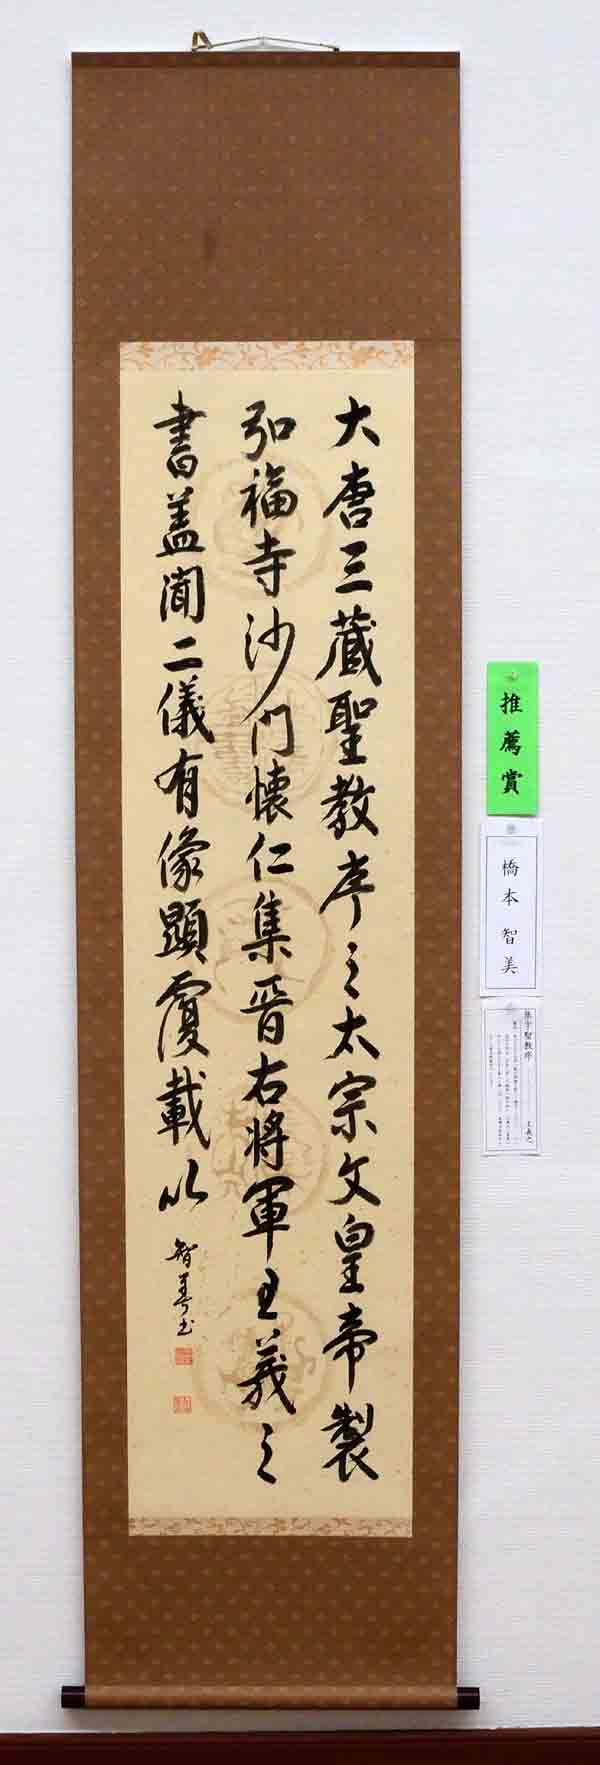 大唐三蔵聖教序之太宗文皇帝製
弘福寺沙門懐仁集晋右将軍王羲之
書蓋聞二儀有像顕覆載以
智美書
推薦賞
橋本 智美
集字聖教序
王羲之